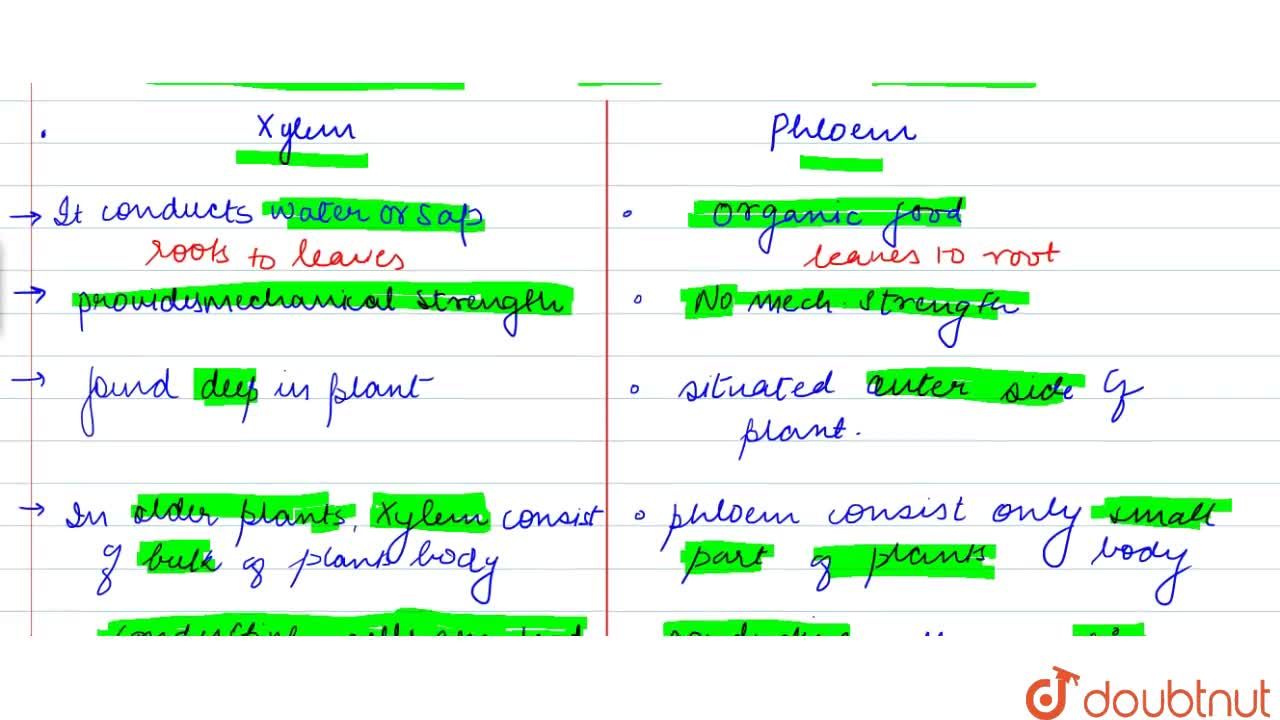 Xylem
Phloem
→ It conducts water or sap
roots to leaves
organic food
leaves to root
→ provides mechanical strength
No mech. strength
→ found deep in plant
situated outer side of
plant.
→ In older plants, Xylem consist
of bulk of plant body
phloem consist only small
part of plants body
doubtnut